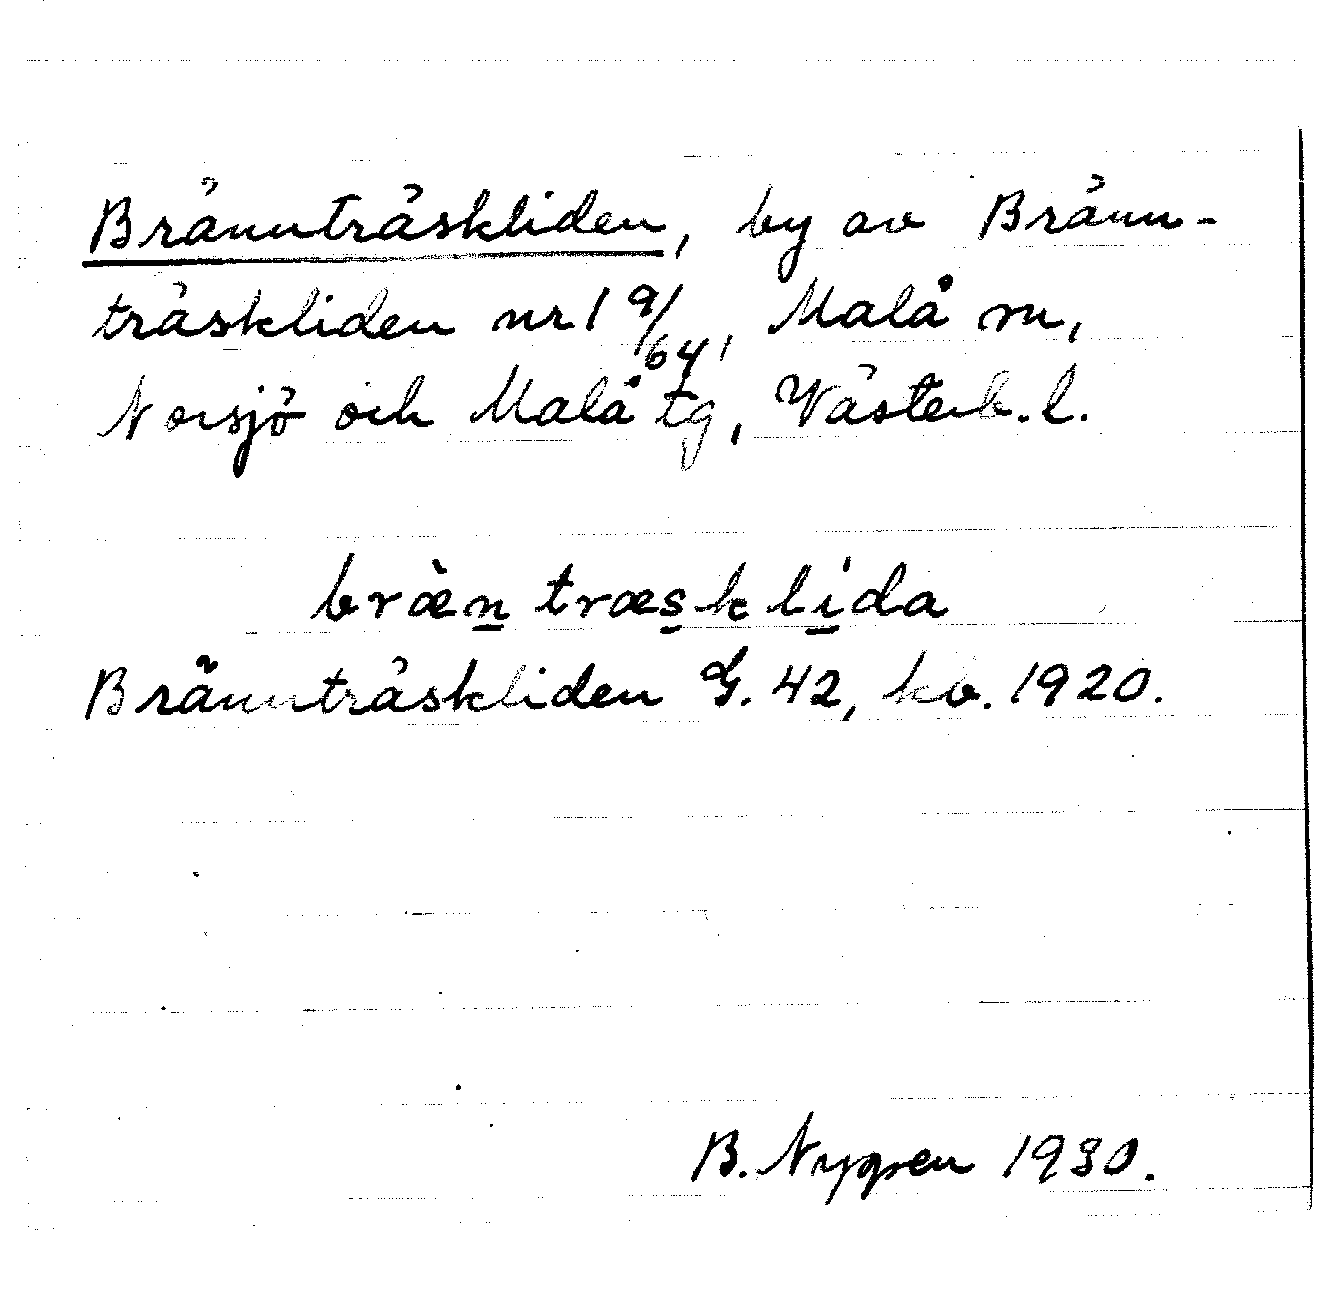 Brännträskliden, by av Bränn-
träskliden nr 1 9/64, Malå sn,
Norsjö och Malå tg, Västerb. l.
bræ̀n̲ træs̲k li̲da
Brännträskliden G. 42, kb. 1920.
B. Nygren 1930.